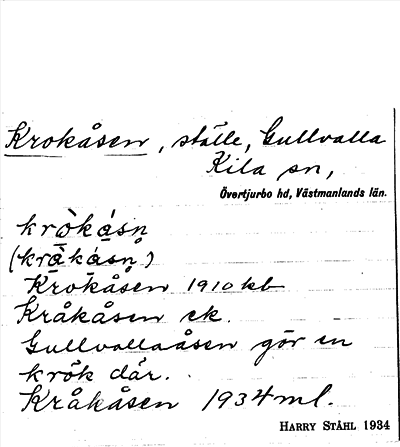 Krokåsen, ställe, Gullvalla
Kila sn,
Övertjurbo hd, Västmanlands län.
krò̀kásn̥
(krà̊kásn̥)
Krokåsen 1910 kb
Kråkåsen ek.
Gullvallaåsen gör en
krök där.
Kråkåsen 1934 ml.
HARRY STÅHL 1934